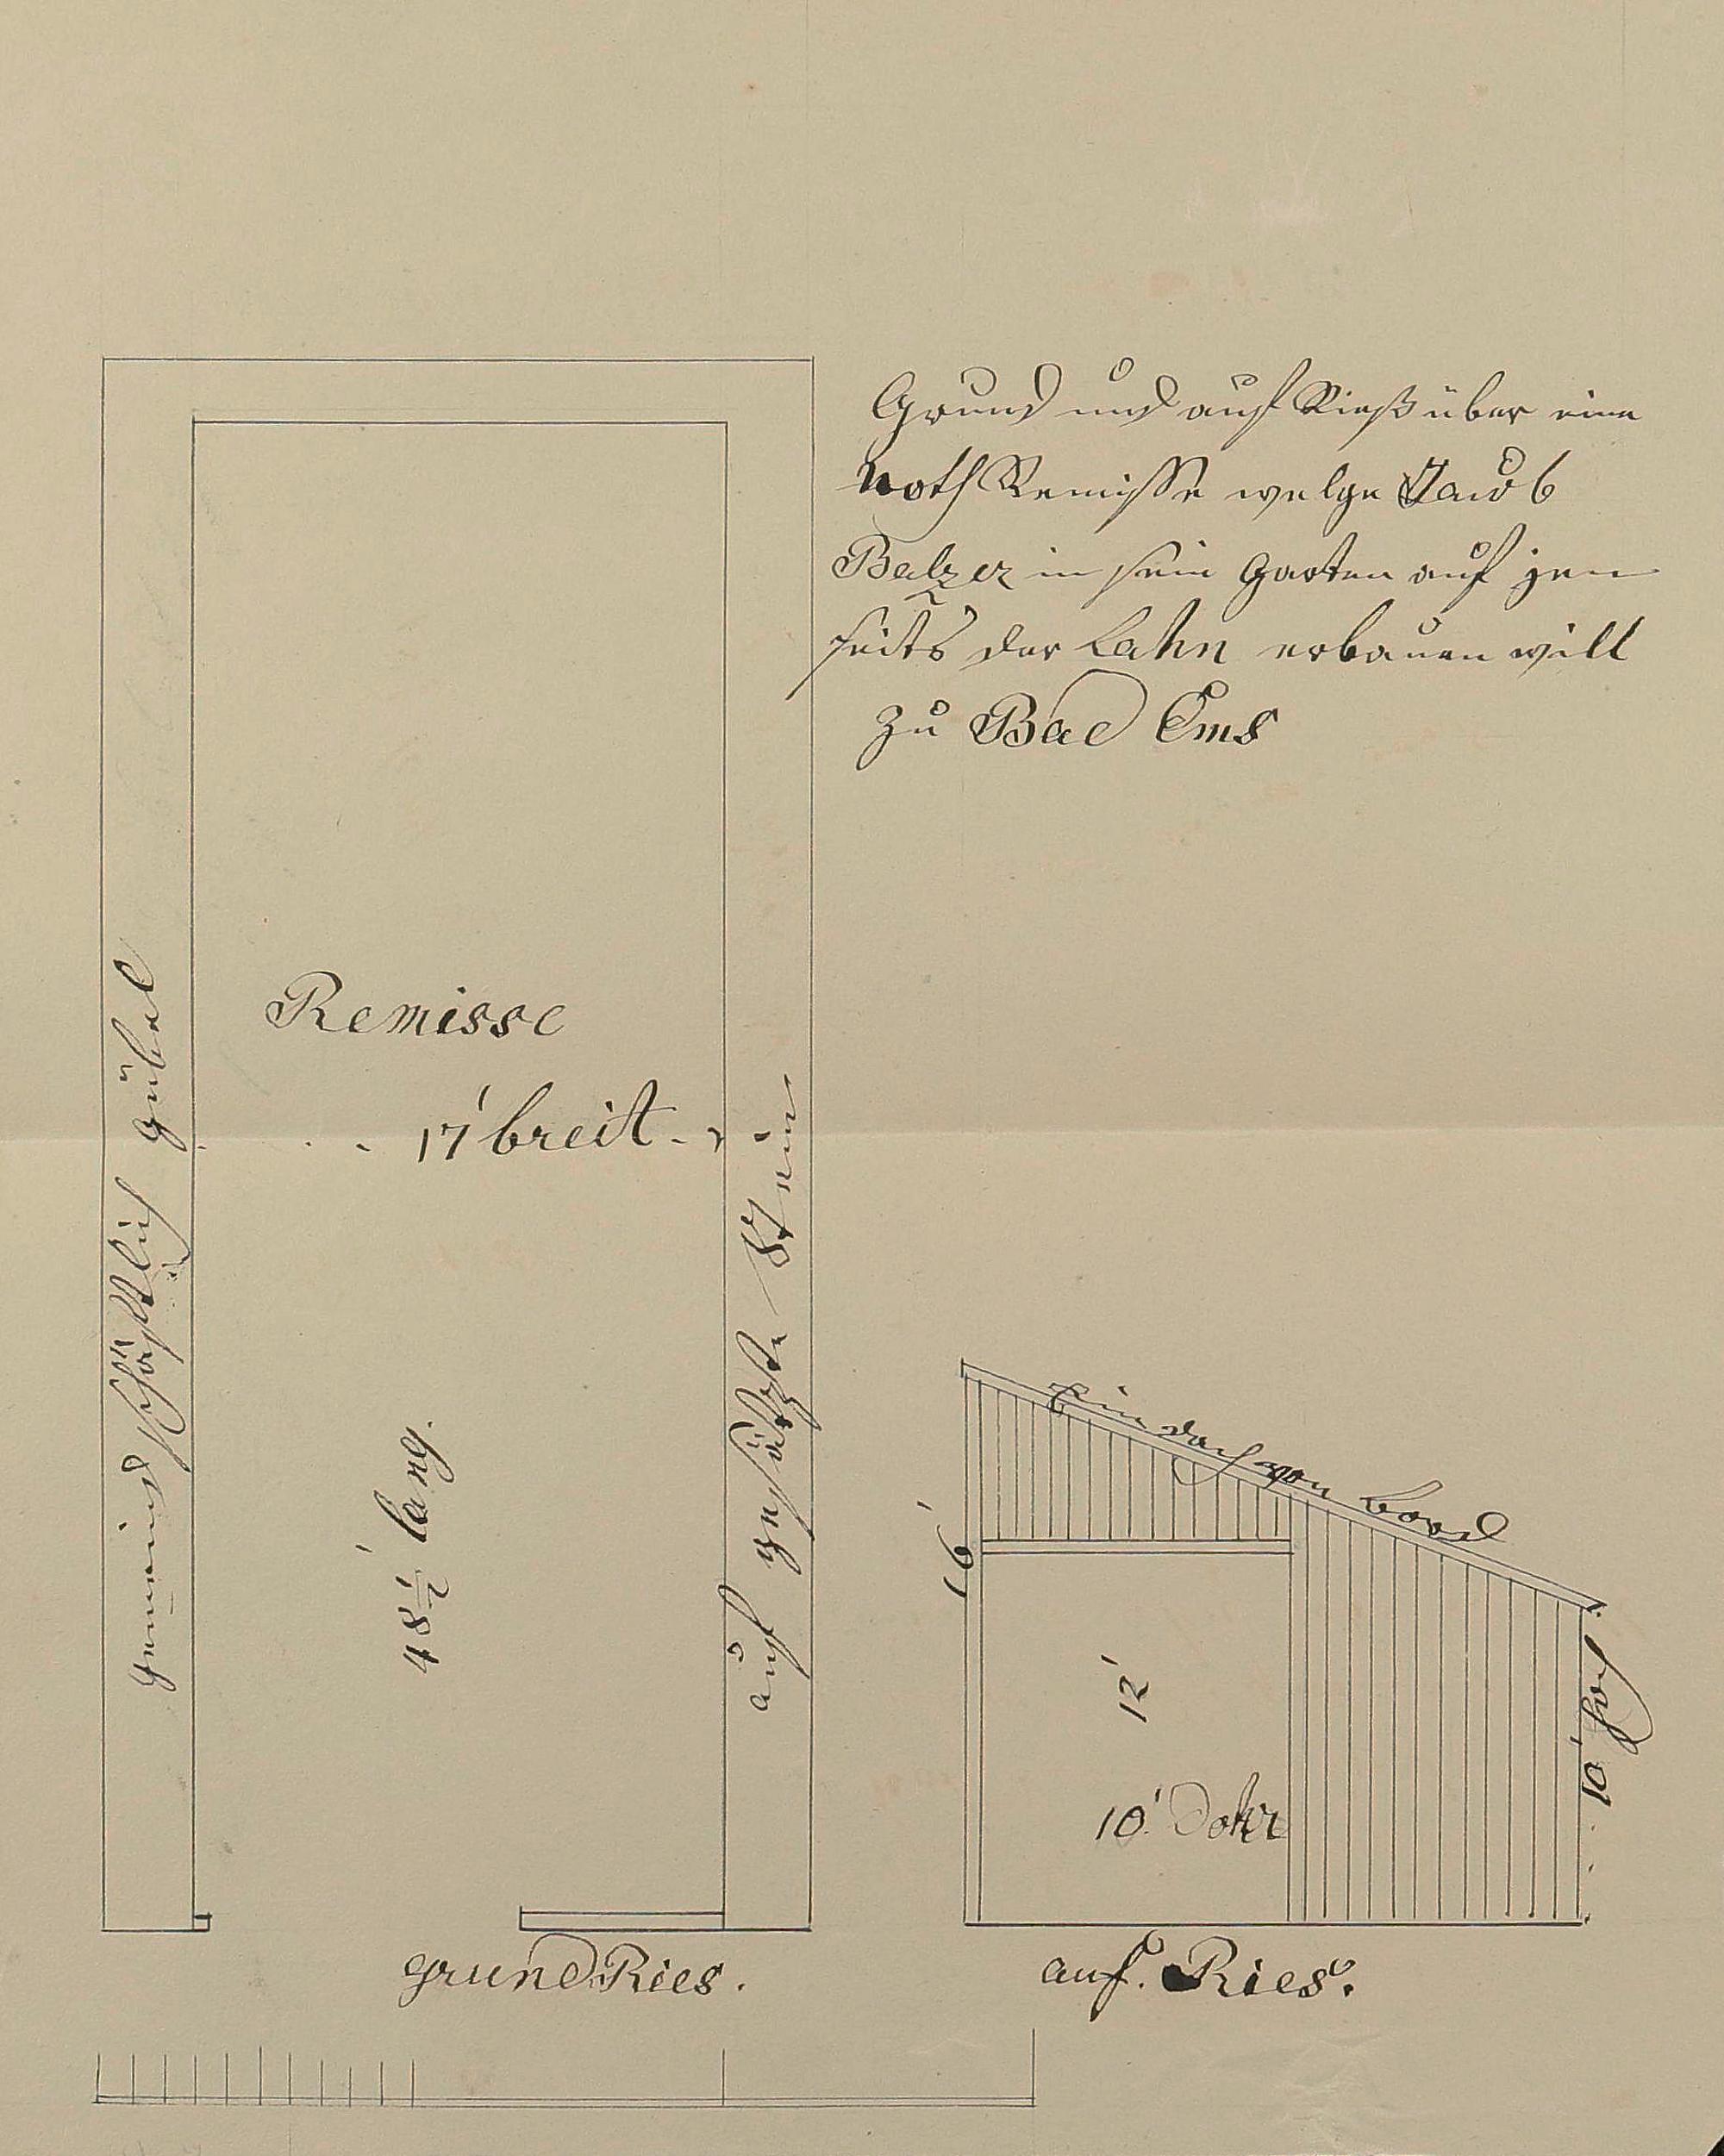 Grund und auf Rieß über eine
Noth Remisse welge Jacob
Balzer in sein Garten auf jen
seits der Lahn erbauen will
zu Bad Ems
Remisse
17' breit
48 1/2' lang.
gemeindschäftlich gübel
auf gesätzte Stein
Ein dach von Bord
16'
12'
10' Dohr
10' hoch
grund Ries.
auf. Ries.